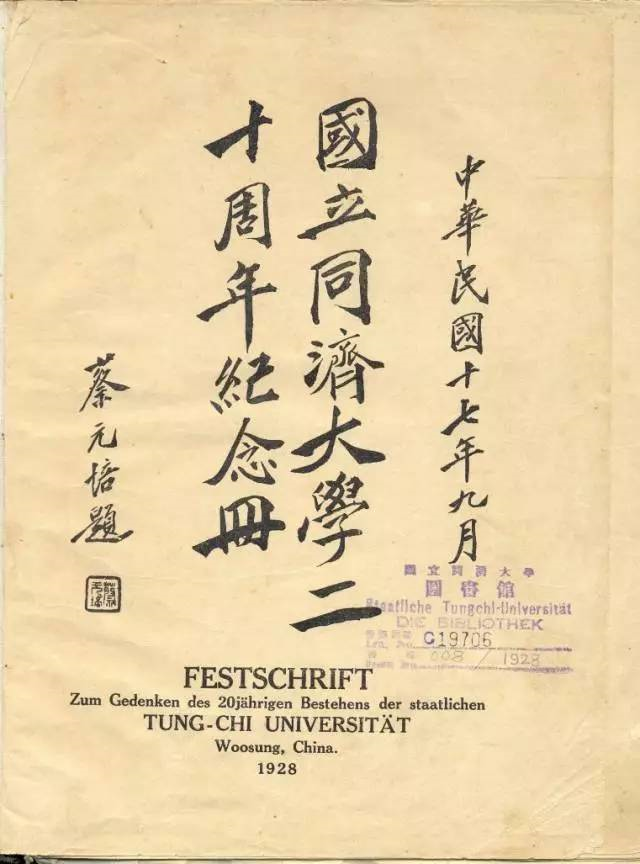 中華民國十七年九月
國立同濟大學二
十周年紀念冊
蔡元培題
國立同濟大學
圖書館
Staatliche Tungchi-Universität
DIE BIBLIOTHEK
C19706
008 / 1928
FESTSCHRIFT
Zum Gedenken des 20jährigen Bestehens der staatlichen
TUNG-CHI UNIVERSITÄT
Woosung, China.
1928